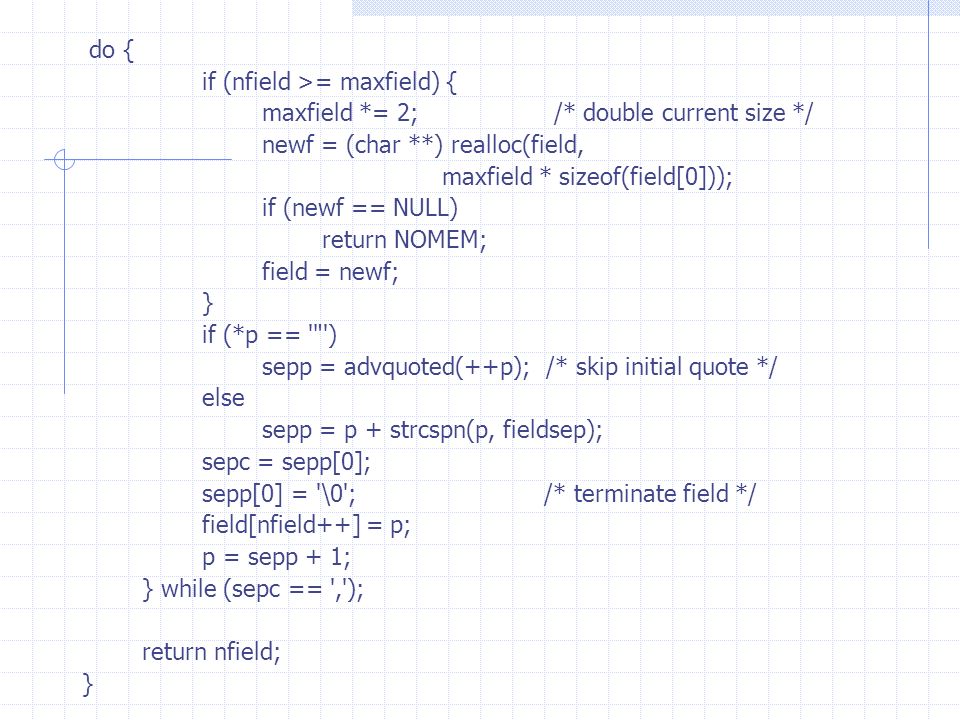 do {
if (nfield >= maxfield) {
maxfield *= 2; /* double current size */
newf = (char **) realloc(field,
maxfield * sizeof(field[0]));
if (newf == NULL)
return NOMEM;
field = newf;
}
if (*p == '"')
sepp = advquoted(++p); /* skip initial quote */
else
sepp = p + strcspn(p, fieldsep);
sepc = sepp[0];
sepp[0] = '\0'; /* terminate field */
field[nfield++] = p;
p = sepp + 1;
} while (sepc == ',');
return nfield;
}